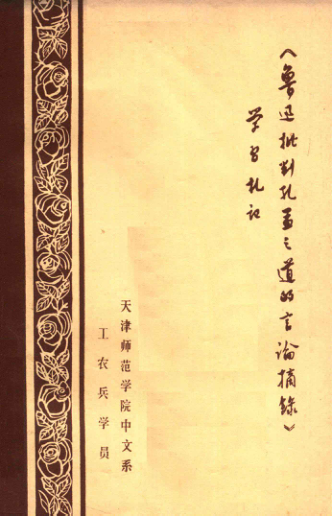 《鲁迅批判孔孟之道的言论摘录》
学习札记
天津师范学院中文系
工农兵学员